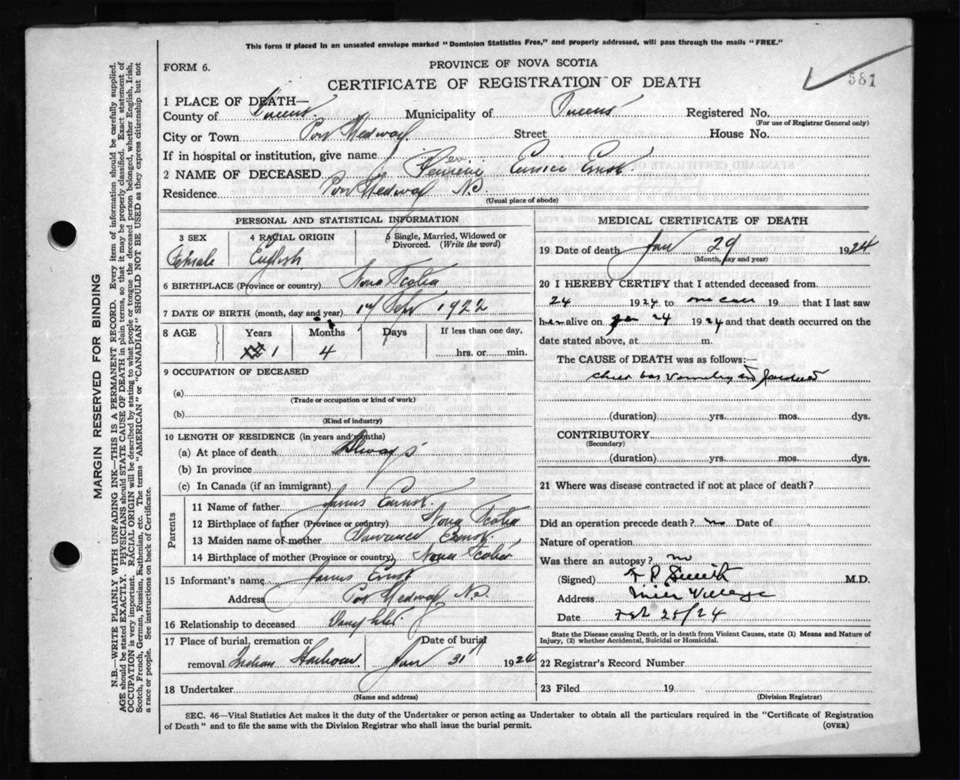 This form if placed in an unsealed envelope marked "Dominion Statistics Free," and properly addressed, will pass through the mails "FREE."
581
FORM 6.
PROVINCE OF NOVA SCOTIA
CERTIFICATE OF REGISTRATION OF DEATH
1 PLACE OF DEATH—
County of Queens Municipality of Queens Registered No.
(For use of Registrar General only)
City or Town Port Medway Street House No.
If in hospital or institution, give name
2 NAME OF DECEASED Eunice Ernst
Residence Port Medway N.S.
(Usual place of abode)
PERSONAL AND STATISTICAL INFORMATION
3 SEX 4 RACIAL ORIGIN 5 Single, Married, Widowed or Divorced. (Write the word)
Female English
6 BIRTHPLACE (Province or country) Nova Scotia
7 DATE OF BIRTH (month, day and year) 17 Sep 1922
8 AGE Years Months Days If less than one day,
1 4 hrs. or min.
9 OCCUPATION OF DECEASED
(a)
(Trade or occupation or kind of work)
(b)
(Kind of industry)
10 LENGTH OF RESIDENCE (in years and months)
(a) At place of death Always
(b) In province
(c) In Canada (if an immigrant)
Parents
11 Name of father James Ernst
12 Birthplace of father (Province or country) Nova Scotia
13 Maiden name of mother Ernst
14 Birthplace of mother (Province or country) Nova Scotia
15 Informant's name James Ernst
Address Port Medway N.S.
16 Relationship to deceased Daughter
17 Place of burial, cremation or removal Indian Harbour Date of burial Jan 31 1924
18 Undertaker
(Name and address)
MEDICAL CERTIFICATE OF DEATH
19 Date of death Jan 29 1924
(Month, day and year)
20 I HEREBY CERTIFY that I attended deceased from
24 1924 to one call 19 that I last saw
her alive on Jan 24 1924 and that death occurred on the
date stated above, at m.
The CAUSE of DEATH was as follows:—
(duration) yrs. mos. dys.
CONTRIBUTORY
(Secondary)
(duration) yrs. mos. dys.
21 Where was disease contracted if not at place of death?
Did an operation precede death? no Date of
Nature of operation
Was there an autopsy? no
(Signed) Smith M.D.
Address Mill Village
Date Feb 25/24
State the Disease causing Death, or in death from Violent Causes, state (1) Means and Nature of
Injury, (2) whether Accidental, Suicidal or Homicidal.
22 Registrar's Record Number
23 Filed 19
(Division Registrar)
SEC. 46—Vital Statistics Act makes it the duty of the Undertaker or person acting as Undertaker to obtain all the particulars required in the "Certificate of Registration
of Death" and to file the same with the Division Registrar who shall issue the burial permit. (OVER)
MARGIN RESERVED FOR BINDING
N.B.—WRITE PLAINLY WITH UNFADING INK—THIS IS A PERMANENT RECORD. Every item of information should be carefully supplied.
AGE should be stated EXACTLY. PHYSICIANS should STATE CAUSE OF DEATH in plain terms, so that it may be properly classified. Exact statement of
OCCUPATION is very important. RACIAL ORIGIN will be described by stating to what people or tongue the deceased person belonged, whether English, Irish,
Scotch, French, German, Russian, Ruthenian, etc. The terms "AMERICAN" or "CANADIAN" SHOULD NOT BE USED as they express citizenship but not
a race or people. See instructions on back of Certificate.